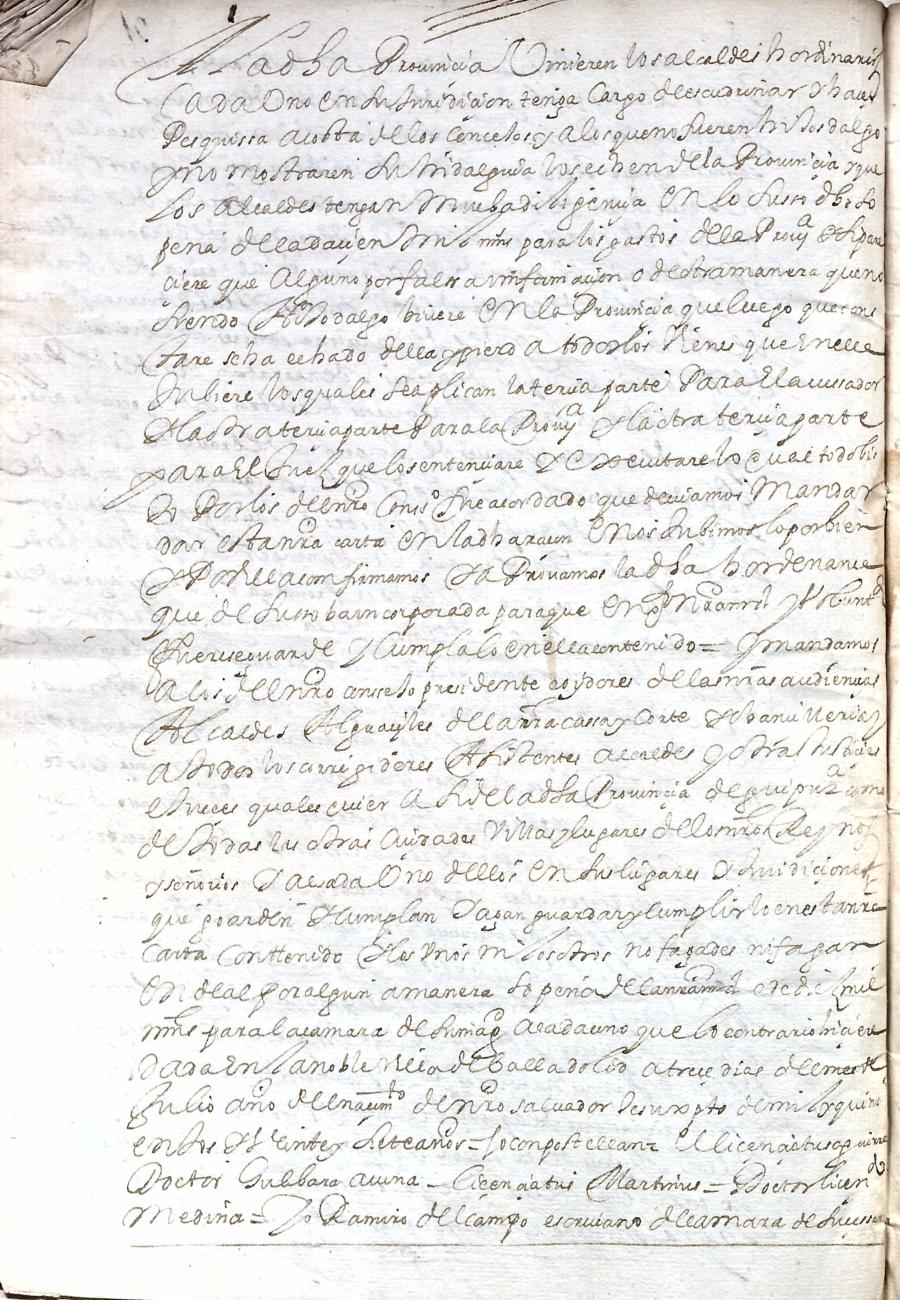 A la dha Provincia Vinieren los alcaldes hordinarios
Cada Uno en su Juridicion tenga Cargo de escudriñar y hacer
Pesquissa a costa de los Concejos y a los que no fueren hijos dalgo
y no mostraren su hidalguia los echen de la Provincia y que
Los Alcaldes tengan mucha diligencia en lo suso dho so
pena de cada cien mil mrs para los gastos de la Provª e si pare
ciere que Alguno por falsa informacion o de otra manera que no
siendo hijo dalgo biviere en la Provincia que luego que cons
tare seha echado della y pierda todos los vienes que en ella
tubiere los quales se aplican la tercia parte Para el acussador
y la otra tercia parte Para la Provª y la otra tercia parte
para el Juez que lo sentenciare y executare lo qual todo bis
to Por los del nro Consº fue acordado que deviamos Mandar
dar esta nra carta en la dha raçon e nos tubimos lo por bien
y Por ella confirmamos y aProvamos la dha hordenança
que de suso ba incorporada para que en quanto nra md y Volunt
fuere se guarde y Cumpla lo en ella contenido = y mandamos
a los del nro consejo presidente e oydores de las nras audiencias
Alcaldes Alguaciles de la nra cassa y Corte y chancillerias
a todos los corregidores Asistentes alcaldes y otras Justicias
e Jueces qualesquier Asi de la dha Provincia de guipuzª como
de todas las otras Ciudades Villas y lugares de los nros Reynos
y señorios y a cada Uno dellos en sus lugares y Juridiciones
que goarden y cumplan y agan guardar y cumplir lo en esta nra
carta Conttenido y los Unos ni los otros no fagades ni fagan
en de al por alguna manera so pena de la nra md e de diez mil
mrs para la camara de su magd a cada uno que lo contrario hiciere
Dada en la noble Villa de Balladolid a trece dias del mes de
Jullio año del nacimto de nro salvador Jesuxpto de mil y quini
entos y Veinte y siete años = Jo compostellan = Licenciatus aguirre
Doctor Guebbara acuna = Licenciatus Martinus = Doctor licendo
Medina = Yo Ramiro del Campo escrivano de camara de su cessa